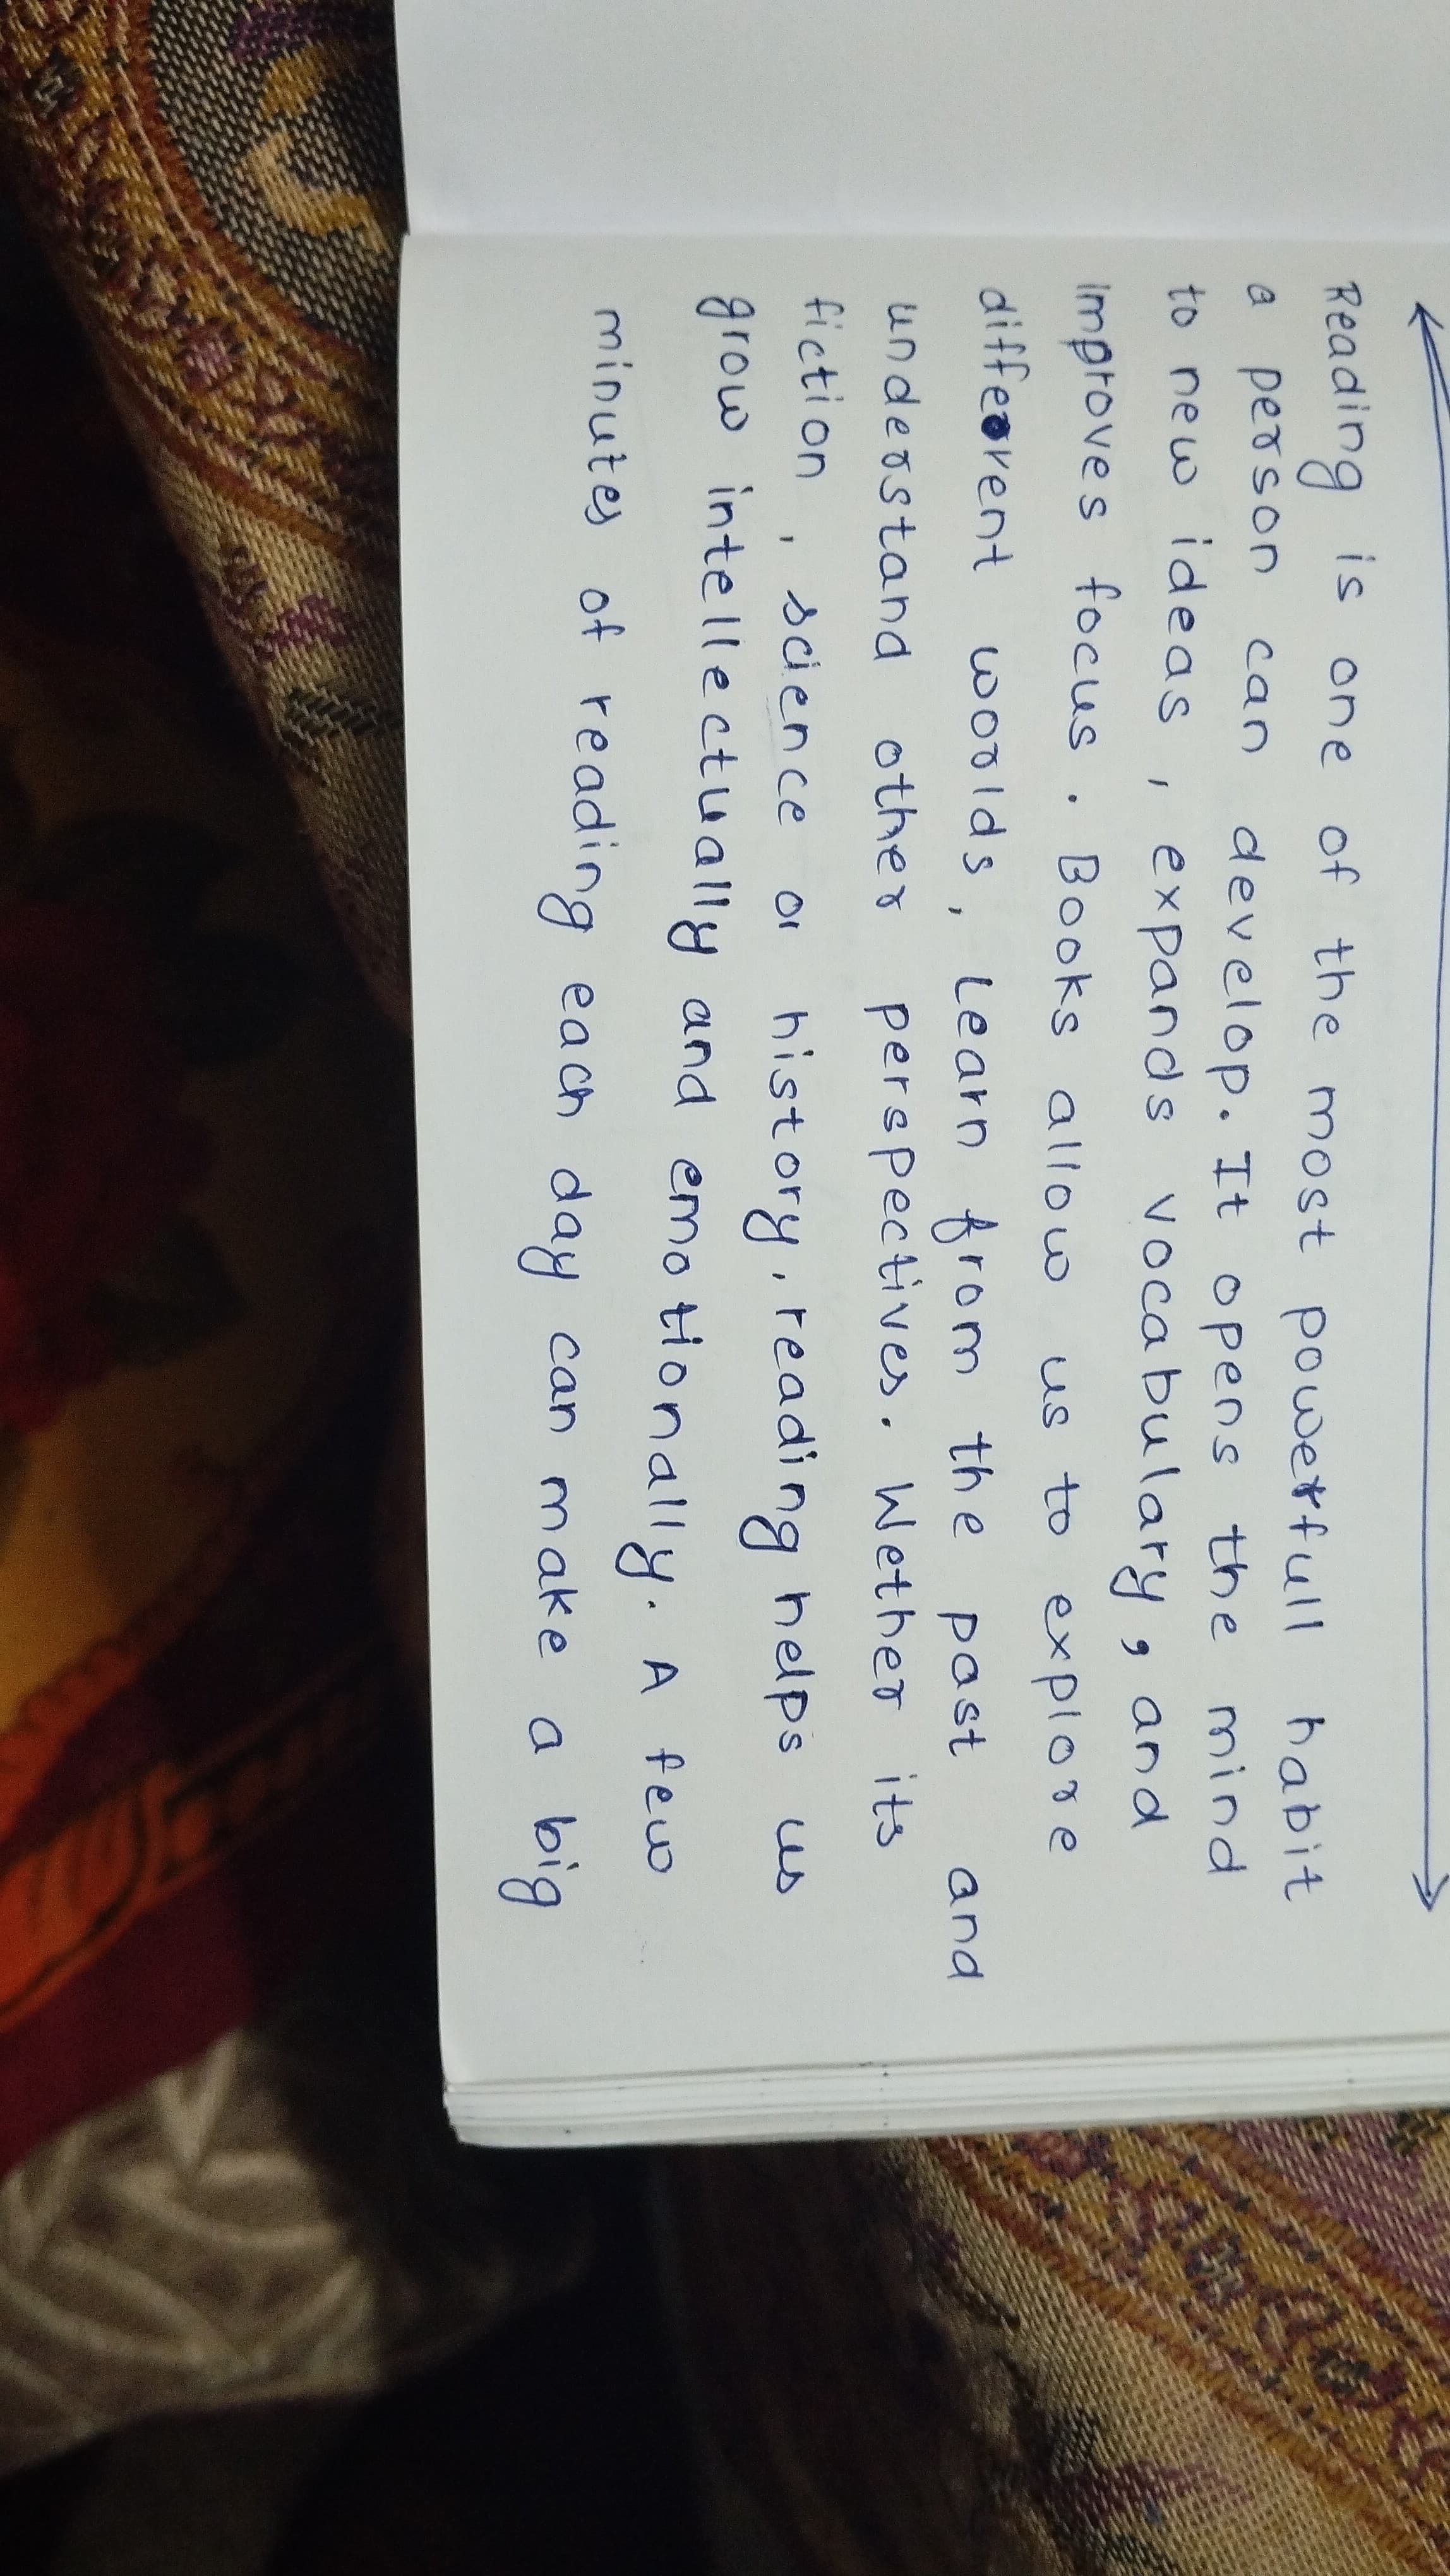 Reading is one of the most powerfull habit
a person can develop. It opens the mind
to new ideas, expands vocabulary, and
improves focus. Books allow us to explore
different worlds, Learn from the past and
understand other perspectives. Wether its
fiction, science or history, reading helps us
grow intellectually and emotionally. A few
minutes of reading each day can make a big